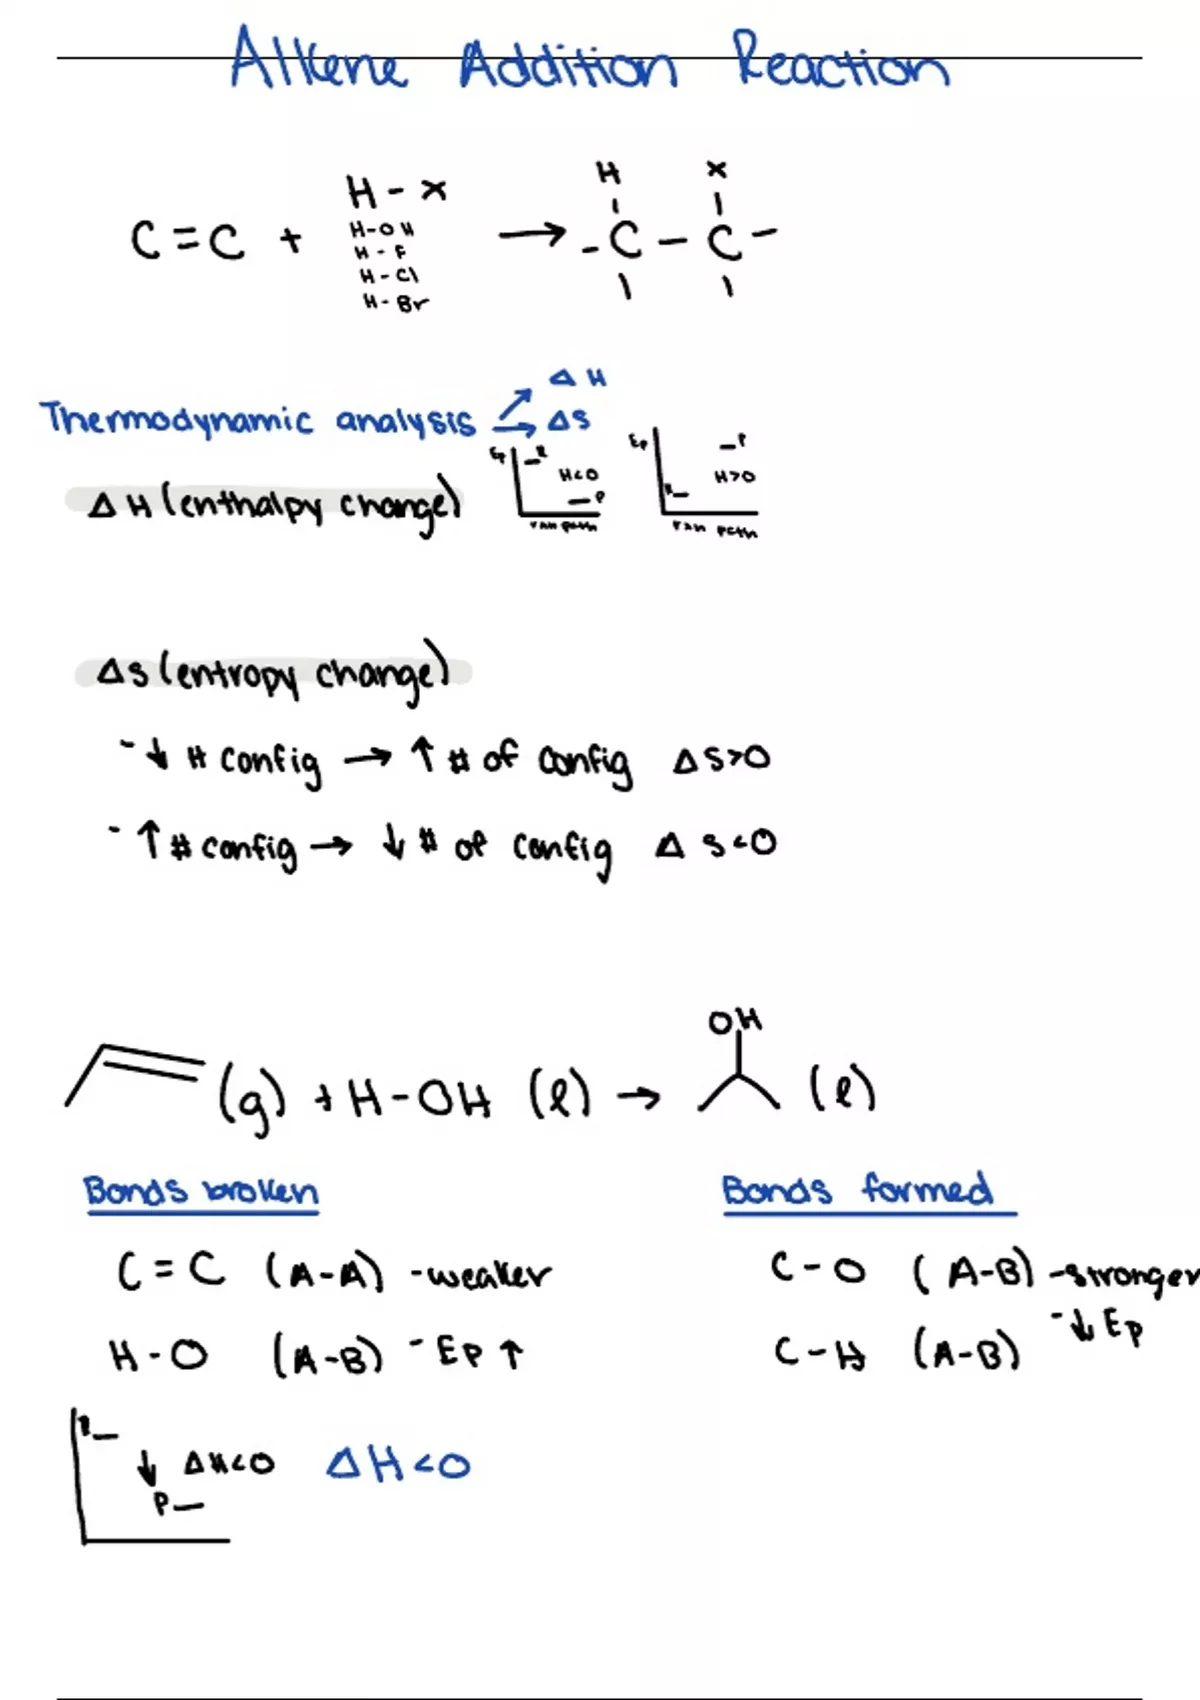 Alkene Addition Reaction
H - x
C = C + H-OH → - C - C -
H - F
H - Cl
H - Br
H x
Thermodynamic analysis → ΔH
→ ΔS
Ep R H<0 P rxn path
Ep R P H>0 rxn path
ΔH (enthalpy change)
ΔS (entropy change)
- ↓ # config → ↑ # of config ΔS>0
- ↑ # config → ↓ # of config ΔS<0
OH
(g) + H-OH (l) → (l)
Bonds broken Bonds formed
C = C (A-A) - weaker C - O (A-B) - stronger
H - O (A-B) - Ep ↑ C - H (A-B) - ↓ Ep
R
↓ ΔH<0 ΔH<0
P